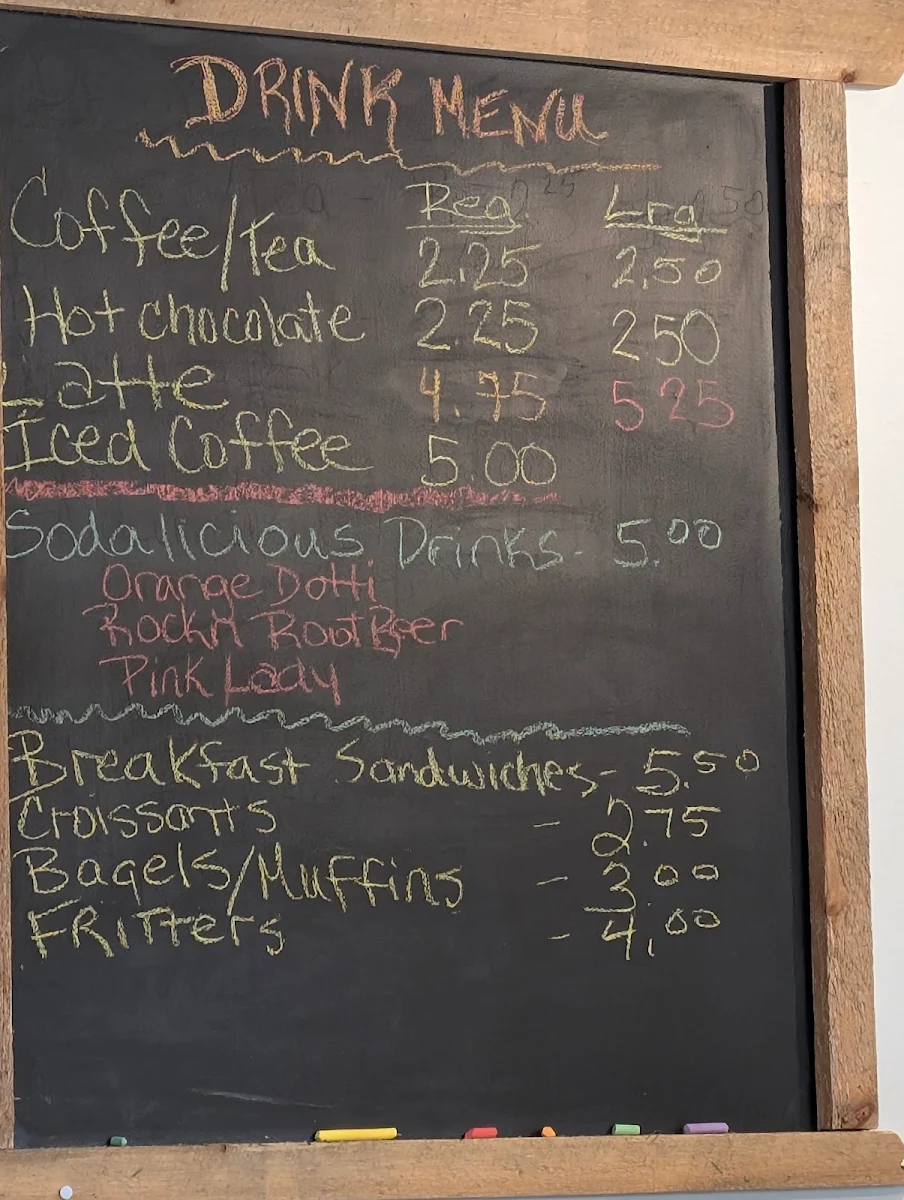 DRINK MENU
Reg Lrg
Coffee/Tea 2.25 2.50
Hot chocolate 2.25 2.50
Latte 4.75 5.25
Iced Coffee 5.00
Sodalicious Drinks - 5.00
Orange Dotti
Rockn Root Beer
Pink Lady
Breakfast Sandwiches - 5.50
Croissants - 2.75
Bagels/Muffins - 3.00
FRitters - 4.00